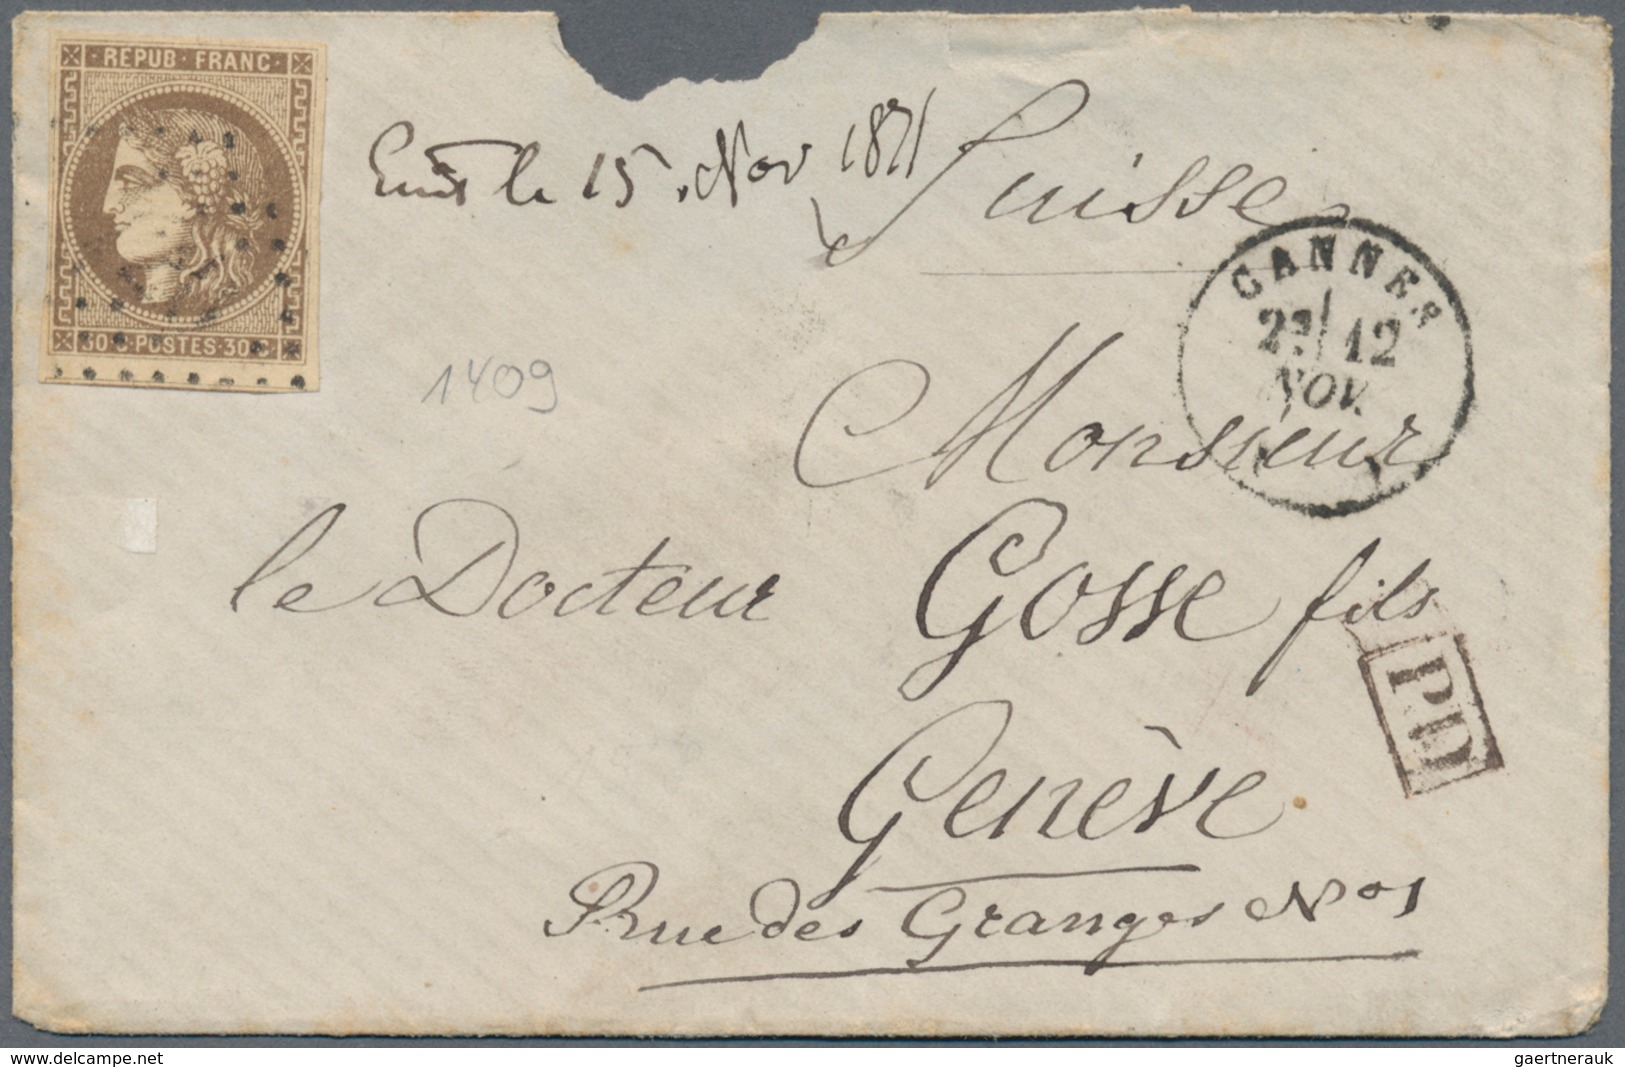 REPUB · FRANC
30 C · POSTES · 30 C
le 15 Nov 1871
Suisse
CANNES
2E / 12
NOV.
71
1409
Monsieur
le Docteur Gosse fils
PD
Genève
Rue des Granges No 1
www.delcampe.net
gaertnerauk